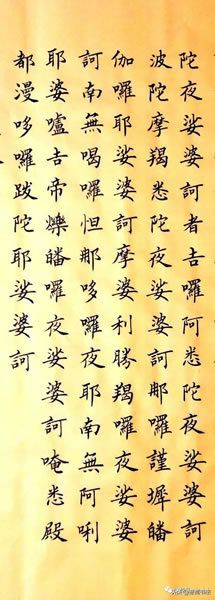 陀夜娑婆訶者吉囉阿悉陀夜娑婆訶
波陀摩羯悉陀夜娑婆訶那囉謹墀皤
伽囉耶娑婆訶摩婆利勝羯囉夜娑婆
訶南無喝囉怛那哆囉夜耶南無阿唎
耶婆嚧吉帝爍皤囉夜娑婆訶唵悉殿
都漫哆囉跋陀耶娑婆訶